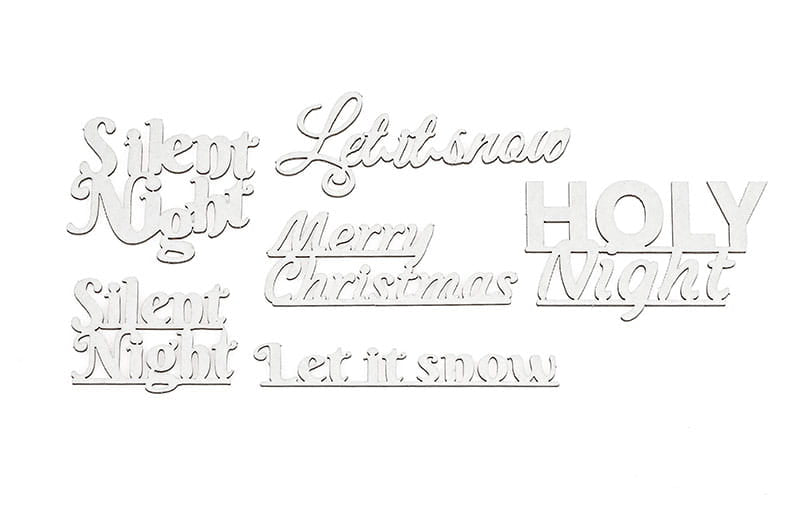 Silent
Night
Let it snow
HOLY
Night
Merry
Christmas
Silent
Night
Let it snow